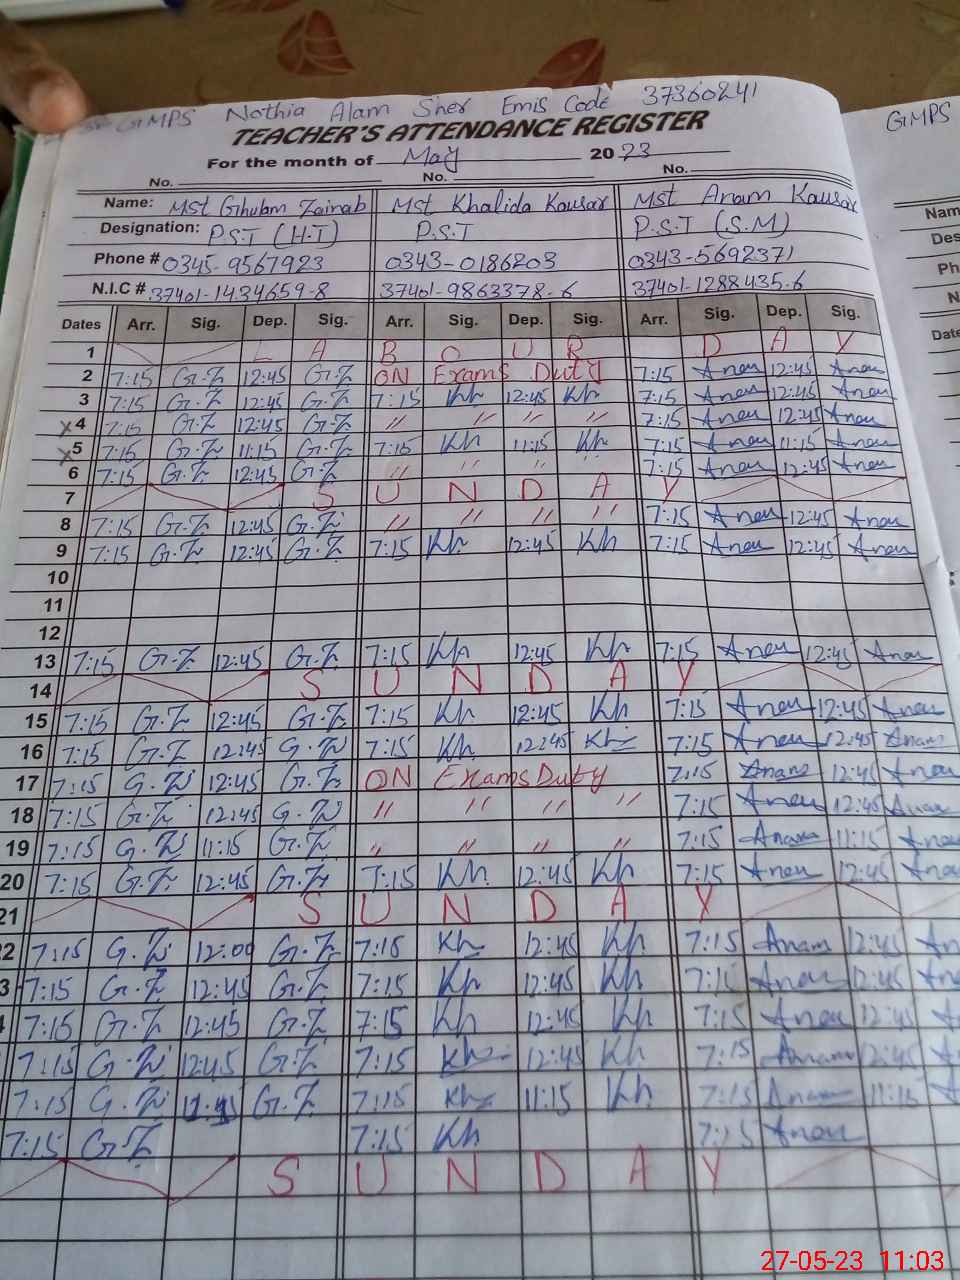 GMPS Nothia Alam Sher Emis Code 37360241
GMPS
TEACHER'S ATTENDANCE REGISTER
For the month of May 2023
No. No. No.
Name: Mst Ghulam Zainab Mst Khalida Kausar Mst Anam Kausar
Designation: P.S.T (H.T) P.S.T P.S.T (S.M)
Phone # 0345-9567923 0343-0186203 0343-5692371
N.I.C # 37401-1434659-8 37401-9863378-6 37401-1288435-6
Dates Arr. Sig. Dep. Sig. Arr. Sig. Dep. Sig. Arr. Sig. Dep. Sig.
1 L A B O U R D A Y
2 7:15 G.Z 12:45 G.Z ON Exams Duty 7:15 Anam 12:45 Anam
3 7:15 G.Z 12:45 G.Z 7:15 Kh 12:45 Kh 7:15 Anam 12:45 Anam
x4 7:15 G.Z 12:45 G.Z " " " " 7:15 Anam 12:45 Anam
x5 7:15 G.Z 11:15 G.Z 7:15 Kh 11:15 Kh 7:15 Anam 11:15 Anam
6 7:15 G.Z 12:45 G.Z " " " " 7:15 Anam 12:45 Anam
7 S U N D A Y
8 7:15 G.Z 12:45 G.Z " " " " 7:15 Anam 12:45 Anam
9 7:15 G.Z 12:45 G.Z 7:15 Kh 12:45 Kh 7:15 Anam 12:45 Anam
10
11
12
13 7:15 G.Z 12:45 G.Z 7:15 Kh 12:45 Kh 7:15 Anam 12:45 Anam
14 S U N D A Y
15 7:15 G.Z 12:45 G.Z 7:15 Kh 12:45 Kh 7:15 Anam 12:45 Anam
16 7:15 G.Z 12:45 G.Z 7:15 Kh 12:45 Kh 7:15 Anam 12:45 Anam
17 7:15 G.Z 12:45 G.Z ON Exams Duty 7:15 Anam 12:45 Anam
18 7:15 G.Z 12:45 G.Z " " " " 7:15 Anam 12:45 Anam
19 7:15 G.Z 11:15 G.Z " " " " 7:15 Anam 11:15 Anam
20 7:15 G.Z 12:45 G.Z 7:15 Kh 12:45 Kh 7:15 Anam 12:45 Anam
21 S U N D A Y
22 7:15 G.Z 12:00 G.Z 7:15 Kh 12:45 Kh 7:15 Anam 12:45 An
3 7:15 G.Z 12:45 G.Z 7:15 Kh 12:45 Kh 7:15 Anam 12:45 An
7:15 G.Z 12:45 G.Z 7:15 Kh 12:45 Kh 7:15 Anam 12:45 A
7:15 G.Z 12:45 G.Z 7:15 Kh 12:45 Kh 7:15 Anam 12:45 A
7:15 G.Z G.Z 7:15 Kh 11:15 Kh 7:15 Anam 11:15 A
7:15 G.Z 7:15 Kh 7:15 Anam
S U N D A Y
Nam
Des
Ph
N
Date
27-05-23 11:03